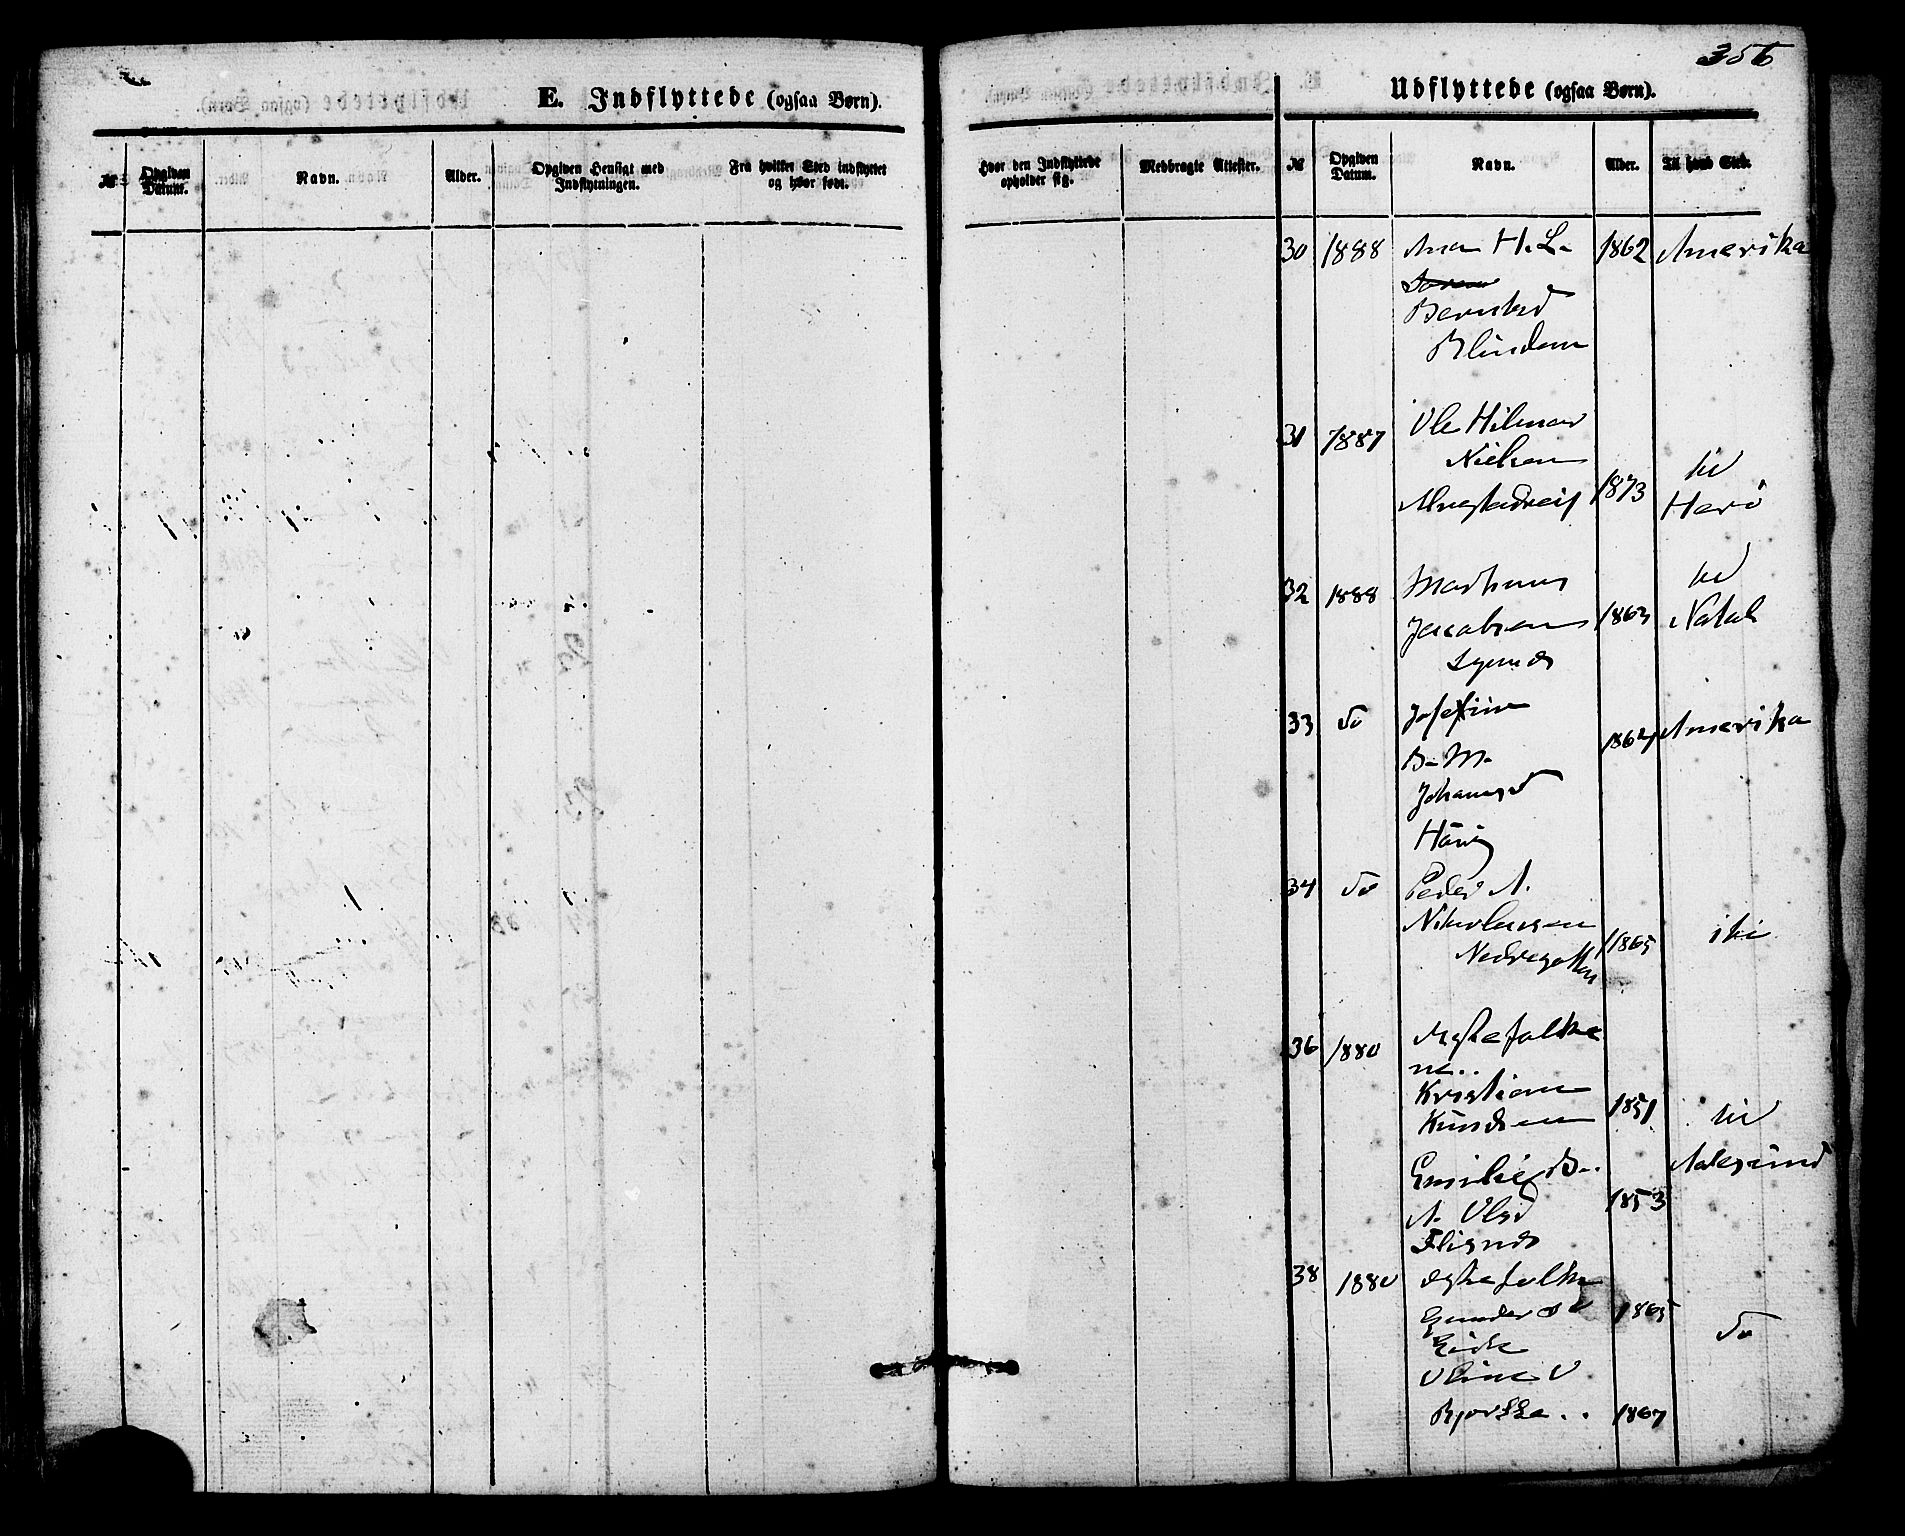 356
E. Indflyttede (ogsaa Børn).
№ Opgiven Datum. Navn. Alder. Opgiven Hensigt med Indflytningen. Fra hvilket Sted indflyttet og hvor født.
Hvor den Indflyttede opholder sig. Medbragte Attester.
Udflyttede (ogsaa Børn).
№ Opgiven Datum. Navn. Alder. Til hvad Sted.
30 1888 Ana H. L. 1862 Amerika
Berntsd
Blindem
31 1887 Ole Hilmar
Nielsen til
1873 Herö
32 1888 Martinus til
Jacobsen 1863 Natal
33 do Josefine
B. M. 1864 Amerika
Johannsd
34 do Peder A.
Nikolausen 1865
36 1880 Ægtefolke
ne..
Kristian
Knudsen 1851 til
Emilie B. Aalesund
A. Olsd 1853
Flisnds
38 1880 Ægtefolke
Gunder O 1865 do
Oline O
1867